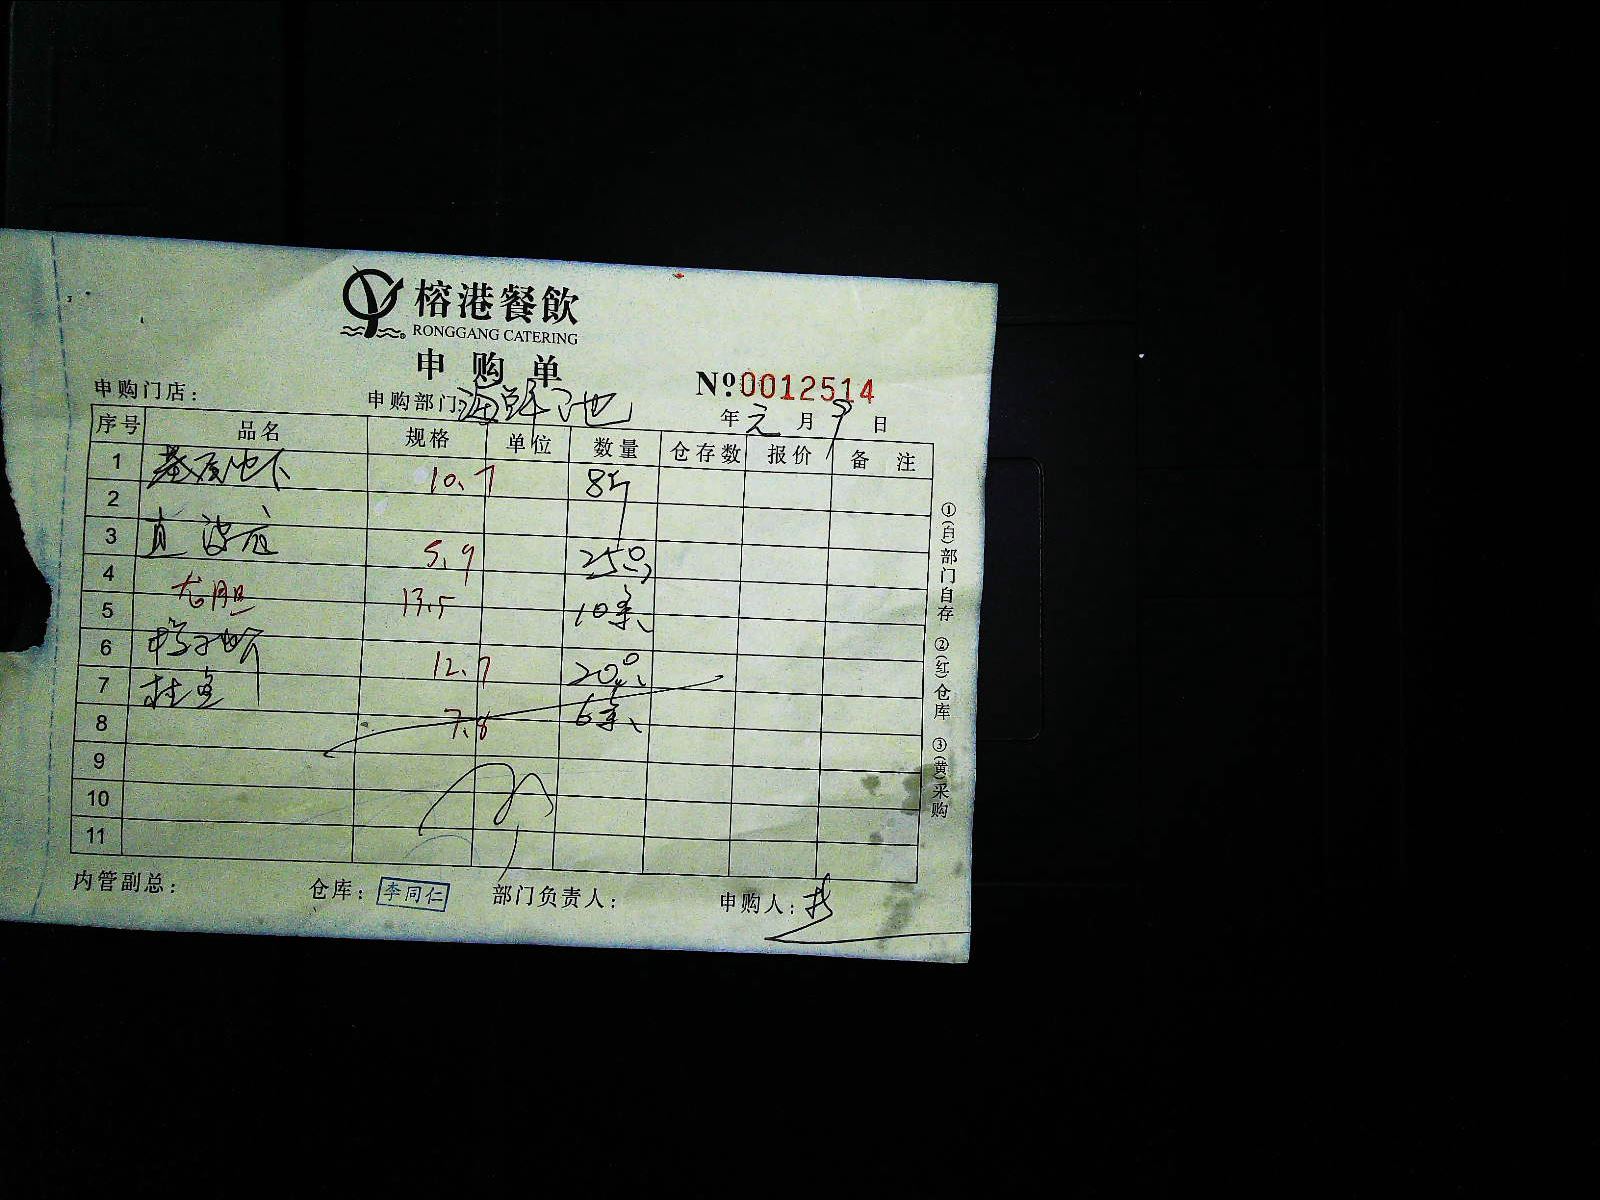 榕港餐飲
RONGGANG CATERING
申购单
申购门店： 申购部门：海鲜池 №0012514
年元月9日
序号 品名 规格 单位 数量 仓存数 报价 备注
1 10.7 8斤
2
3 5.9 25只
4 龙胆 13.5
5 10条
6 12.7 20只
7 桂鱼
8 7.8 6条
9
10
11
内管副总： 仓库：李同仁 部门负责人： 申购人：
①(白)部门自存 ②(红)仓库 ③(黄)采购